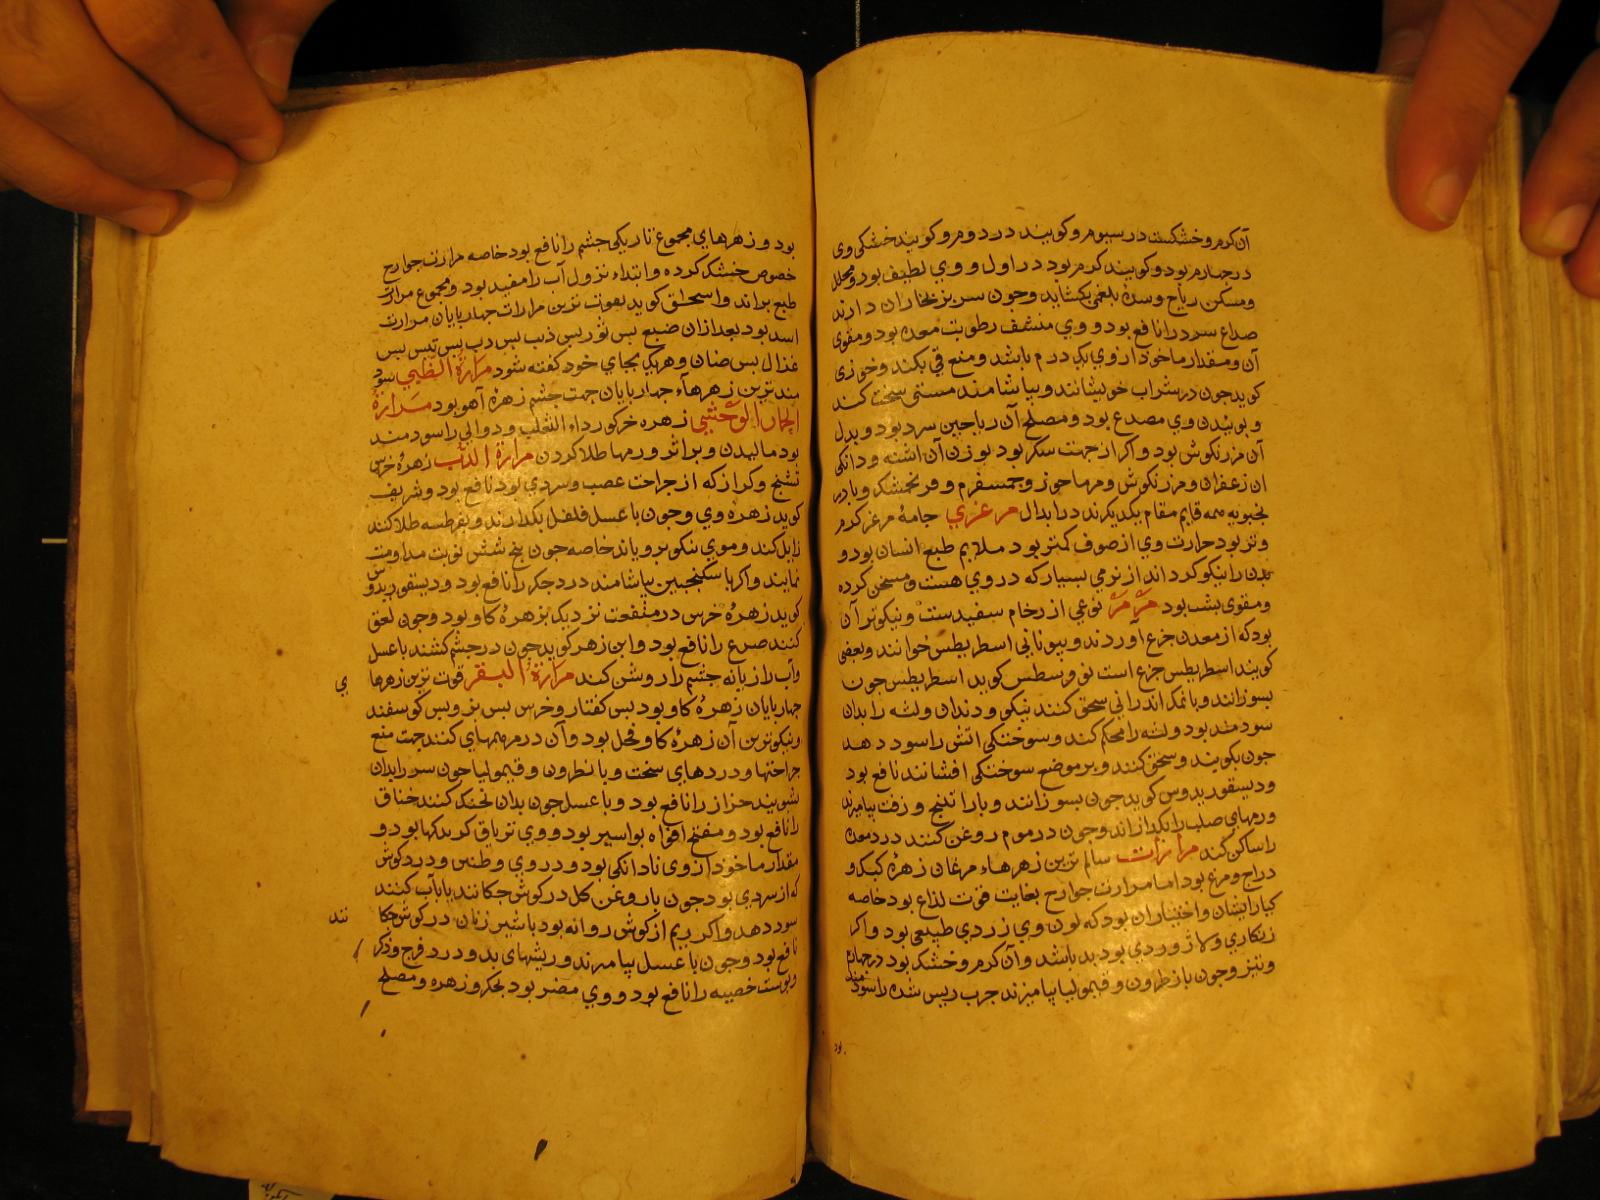 آن کرم و خشکست در سیوم و کویند در دوم و کویند خشکی وی
در چهارم بود و کویند کرم بود در اول و وی لطیف بود و محلل
و مسکن ریاح و سده بلغمی بکشاید و چون سر بر بخار آن دارند
صداع سرد را نافع بود و وی منشف رطوبت معده بود و مقوی
آن و مقدار ماخود از وی یک درم باشد و منع قی بکند و خوزی
کوید چون در شراب خویسانند و بیاشامند مستی سخت کند
و بوئیدن وی مصدع بود و مصلح آن ریاحین سرد بود و بدل
آن مرزنکوش بود و اکر از جهت سکر بود بوزن آن اشنه و دانکی
ان زعفران و مرزنکوش و مرماحوز و جمسفرم و فرنجمشک و بادر
نجبویه همه قایم مقام یکدیکرند در ابدال مرعزی جامهٔ مرغز کرم
و تر بود حرارت وی از صوف کمتر بود ملایم طبع انسان بود و
بدن را نیکو کرداند از نرمی بسیار که در وی هست و مسخن کرده
و مقوی پشت بود مرمر نوعی از رخام سفیدست و نیکوتر آن
بود که از معدن جزع آورند و بیونانی اسطریطس خوانند و بعضی
کویند اسطریطس جزع است کوید اسطریطس چون
بسوزانند و بانمک اندرانی سحق کنند نیکو و دندان و لثه را بدان
سود مند بود و لثه را محکم کند و سوختکی اتش را سود دهد
چون بکویند و سحق کنند و بر موضع سوختکی افشانند نافع بود
و دیسقوریدوس کوید چون بسوزانند و با راتینج و زفت بیامیزند
ورمهای صلب را بکدازاند و چون در موم روغن کنند درد معده
را ساکن کند مرارات سالم ترین زهرهاء مرغان زهرهٔ کبک و
دراج و مرغ بود اما مرارت جوارح بغایت قوت لذاع بود خاصه
کبار ایشان و اختیار آن بود که لون وی زردی طبیعی بود و اکر
زنکاری و لاژوردی بود بد باشد و آن کرم و خشک بود در چهارم
و تیز و چون با نطرون و قیمولیا بیامیزند جرب ریش شده را سود مند
بود
بود و زهرهای مجموع تاریکی چشم را نافع بود خاصه مرارت جوارح
خصوص خشک کرده و ابتداء نزول آب را مفید بود و مجموع مرارت
طبع براند و اسحاق کوید بقوت ترین مرارات چهارپایان مرارت
اسد بود بعد از آن ضبع پس ثور پس ذیب پس دب پس تیس پس
غزال پس ضان و هریکی بجای خود کفته شود مرارة الظبی سود
مند ترین زهرهاء چهارپایان جهت چشم زهرهٔ آهو بود مرارة
الحمار الوحشی زهره خر کور داء الثعلب و دوالی را سود مند
بود مالیدن و بر اثر ورمها طلا کردن مرارة الدب زهرهٔ خرس
تشنج و کزاز که از جراحت عصب و سردی بود نافع بود و شریف
کوید زهرهٔ وی چون با عسل فلفل بکدازند و بقرطسه طلا کنند
زایل کند و موی نیکو برویاند خاصه چون پنج شش نوبت مداومت
نمایند و اکر با سکنجبین بیاشامند درد جکر را نافع بود و دیسقوریدوس
کوید زهرهٔ خرس در منفعت نزدیک بزهرهٔ کاو بود و چون لعق
کنند صرع را نافع بود و ابن زهر کوید چون در چشم کشند با عسل
و آب رازیانه چشم را روشن کند مرارة البقر قوت ترین زهرها
ی
چهارپایان زهرهٔ کاو بود پس کفتار و خرس پس بز و پس کوسفند
و نیکوترین آن زهرهٔ کاو فحل بود و آن در مرهمهای کنند جهت منع
جراحتها و دردهای سخت و با نطرون و قیمولیا چون سر را بدان
بشویند حزاز را نافع بود و با عسل چون بدان تحنک کنند خناق
را نافع بود و مفتح افواه بواسیر بود و وی تریاق کزیدکیها بود و
مقدار ماخود از وی تا دانکی بود و در وی و طنین و درد کوش
که از سردی بود چون با روغن کل در کوش چکانند یا با آب کنند
سود دهد و اکر ریم از کوش روانه بود با شیر زنان در کوش چکا
نند
نافع بود و چون با عسل بیامیزند و ریشهای بد و درد فرج و ذکر
و پوست خصیه را نافع بود و وی مضر بود بجکر و زهره و مصلح